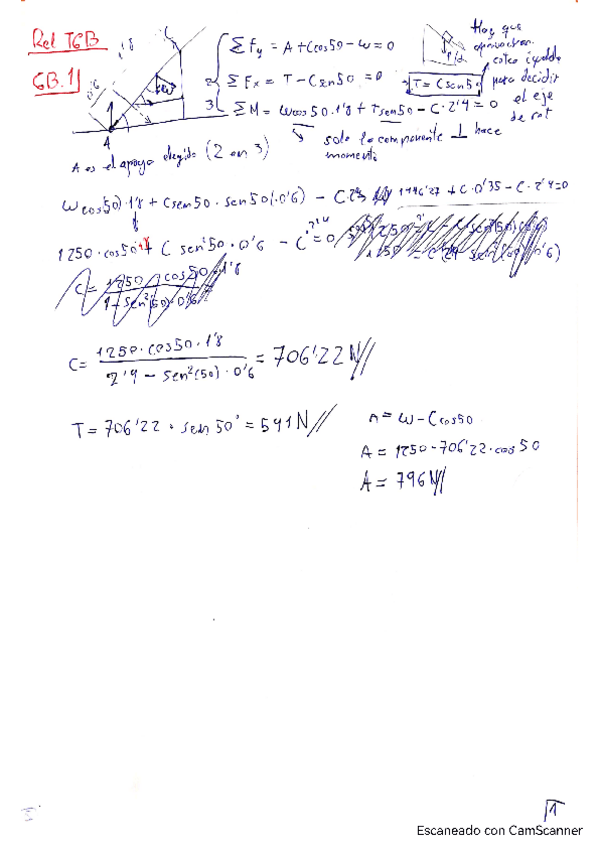 Rel T6B
6B.1
1'8
0'6
C
w
A
ΣFy = A + Ccos50 - w = 0
2 ΣFx = T - Csen50 = 0
3 ΣM = wcos50·1'8 + Tsen50 - C·2'4 = 0
T = Csen50
Hay que
para decidir
el eje
de rot
solo la componente ⊥ hace
momento
A es el apoyo elegido (2 en 3)
w cos(50)·1'8 + Csen50·sen50(·0'6) - C·2'4
+ C·0'35 - C·2'4=0
1250·cos50·1'8 + C sen²50·0'6 - C·2'4 = 0
C = 1250·cos50·1'8 / 2'4 - sen²(50)·0'6 = 706'22 N//
T = 706'22 · sen50° = 541 N//
A = w - Ccos50
A = 1250 - 706'22·cos50
A = 796 N//
1
Escaneado con CamScanner